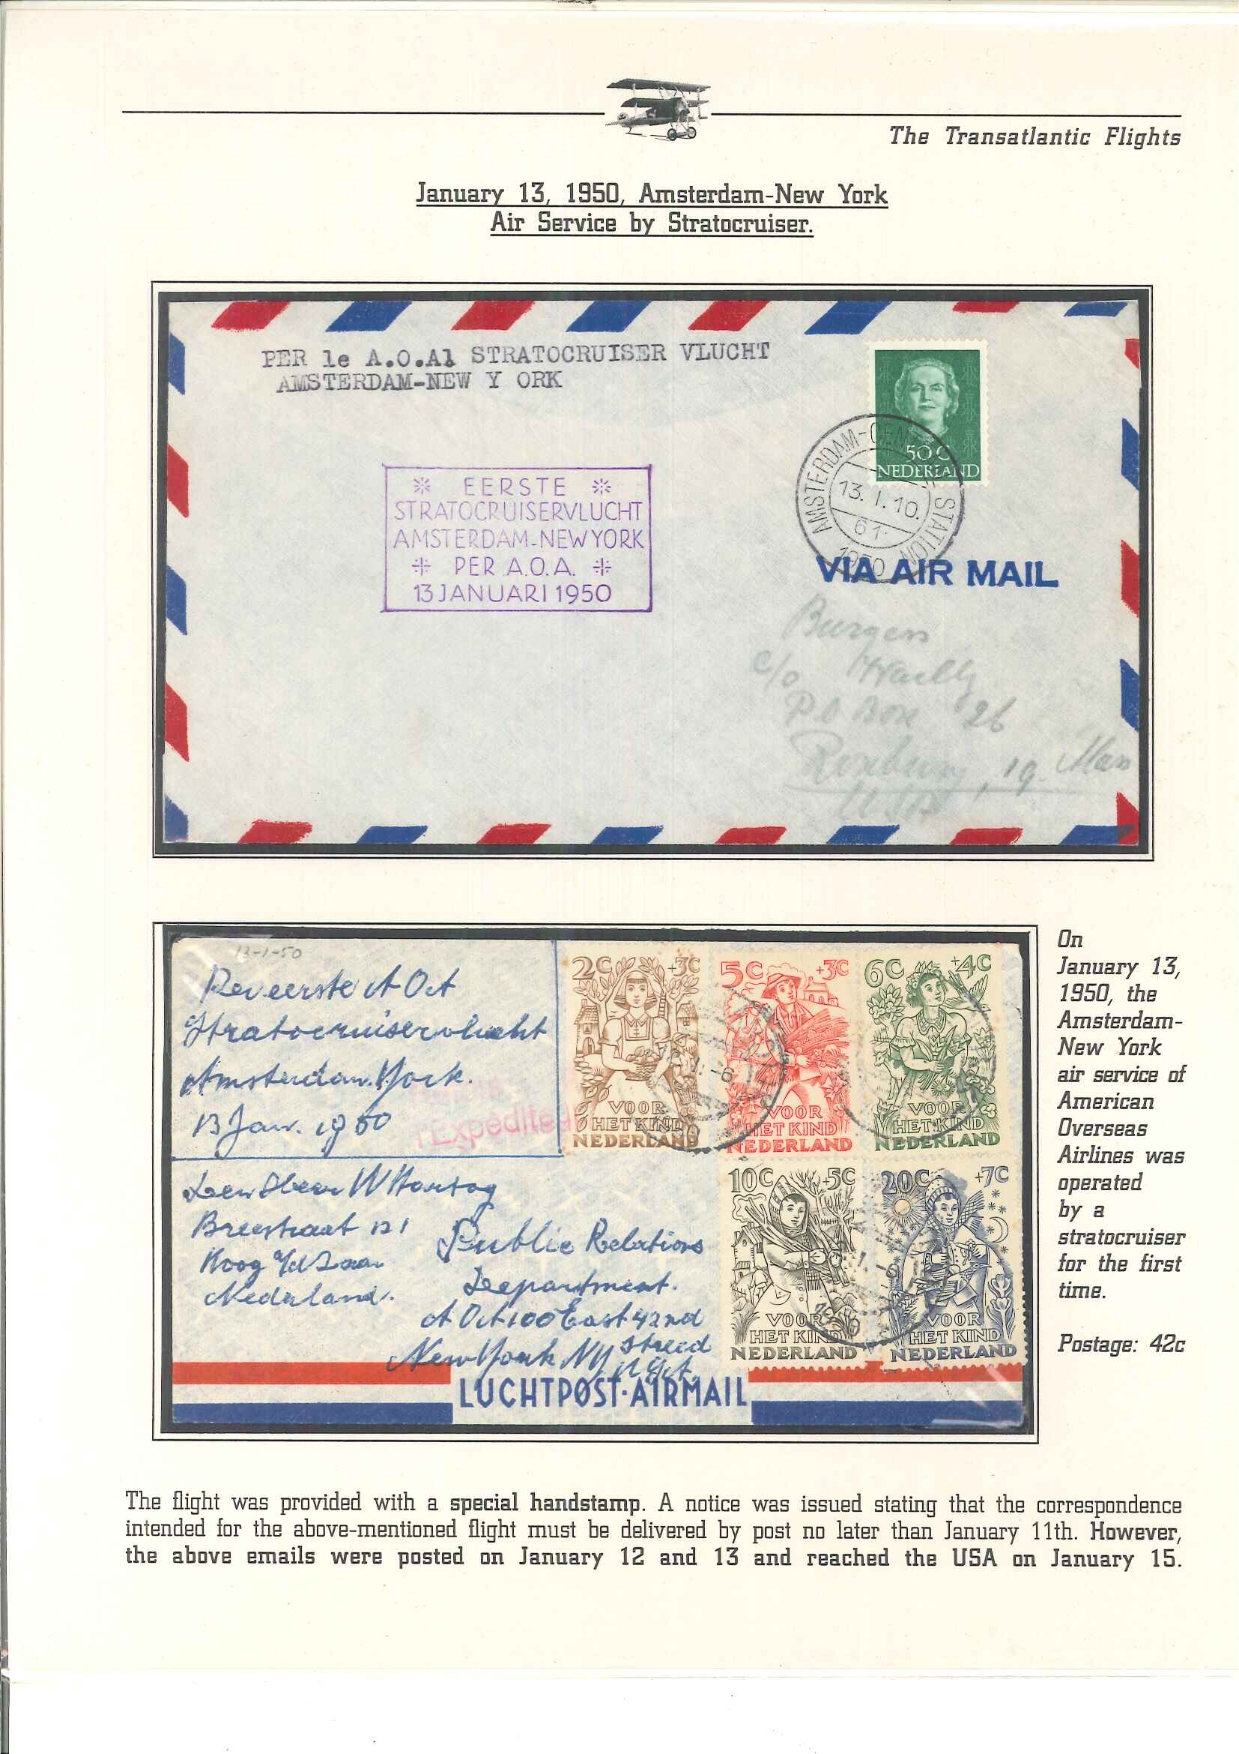 The Transatlantic Flights
January 13, 1950, Amsterdam-New York
Air Service by Stratocruiser.
PER 1e A.O.Al STRATOCRUISER VLUCHT
AMSTERDAM-NEW Y ORK
50 C
NEDERLAND
AMSTERDAM-CEN STATION
13. 1. 10.
61.
1950
EERSTE
STRATOCRUISERVLUCHT
AMSTERDAM-NEW YORK
PER A.O.A.
13 JANUARI 1950
VIA AIR MAIL
Burgers
c/o
P.O Box 26
Roxbury, 19. Mass
USA
13-1-50
Stratocruiservlucht
Amsterdam. York.
13 Jan. 1950
Expedited
2C +3C
VOOR
HET KIND
NEDERLAND
5C +3C
VOOR
HET KIND
NEDERLAND
6C +4C
VOOR
HET KIND
NEDERLAND
10C +5C
VOOR
HET KIND
NEDERLAND
20C +7C
VOOR
HET KIND
NEDERLAND
Den Heer W Hartog
Breestraat 121
Koog a/d Zaan
Nederland.
Public Relations
Department.
100 East 42nd
Street
New York NY
LUCHTPOST·AIRMAIL
On
January 13,
1950, the
Amsterdam-
New York
air service of
American
Overseas
Airlines was
operated
by a
stratocruiser
for the first
time.
Postage: 42c
The flight was provided with a special handstamp. A notice was issued stating that the correspondence
intended for the above-mentioned flight must be delivered by post no later than January 11th. However,
the above emails were posted on January 12 and 13 and reached the USA on January 15.